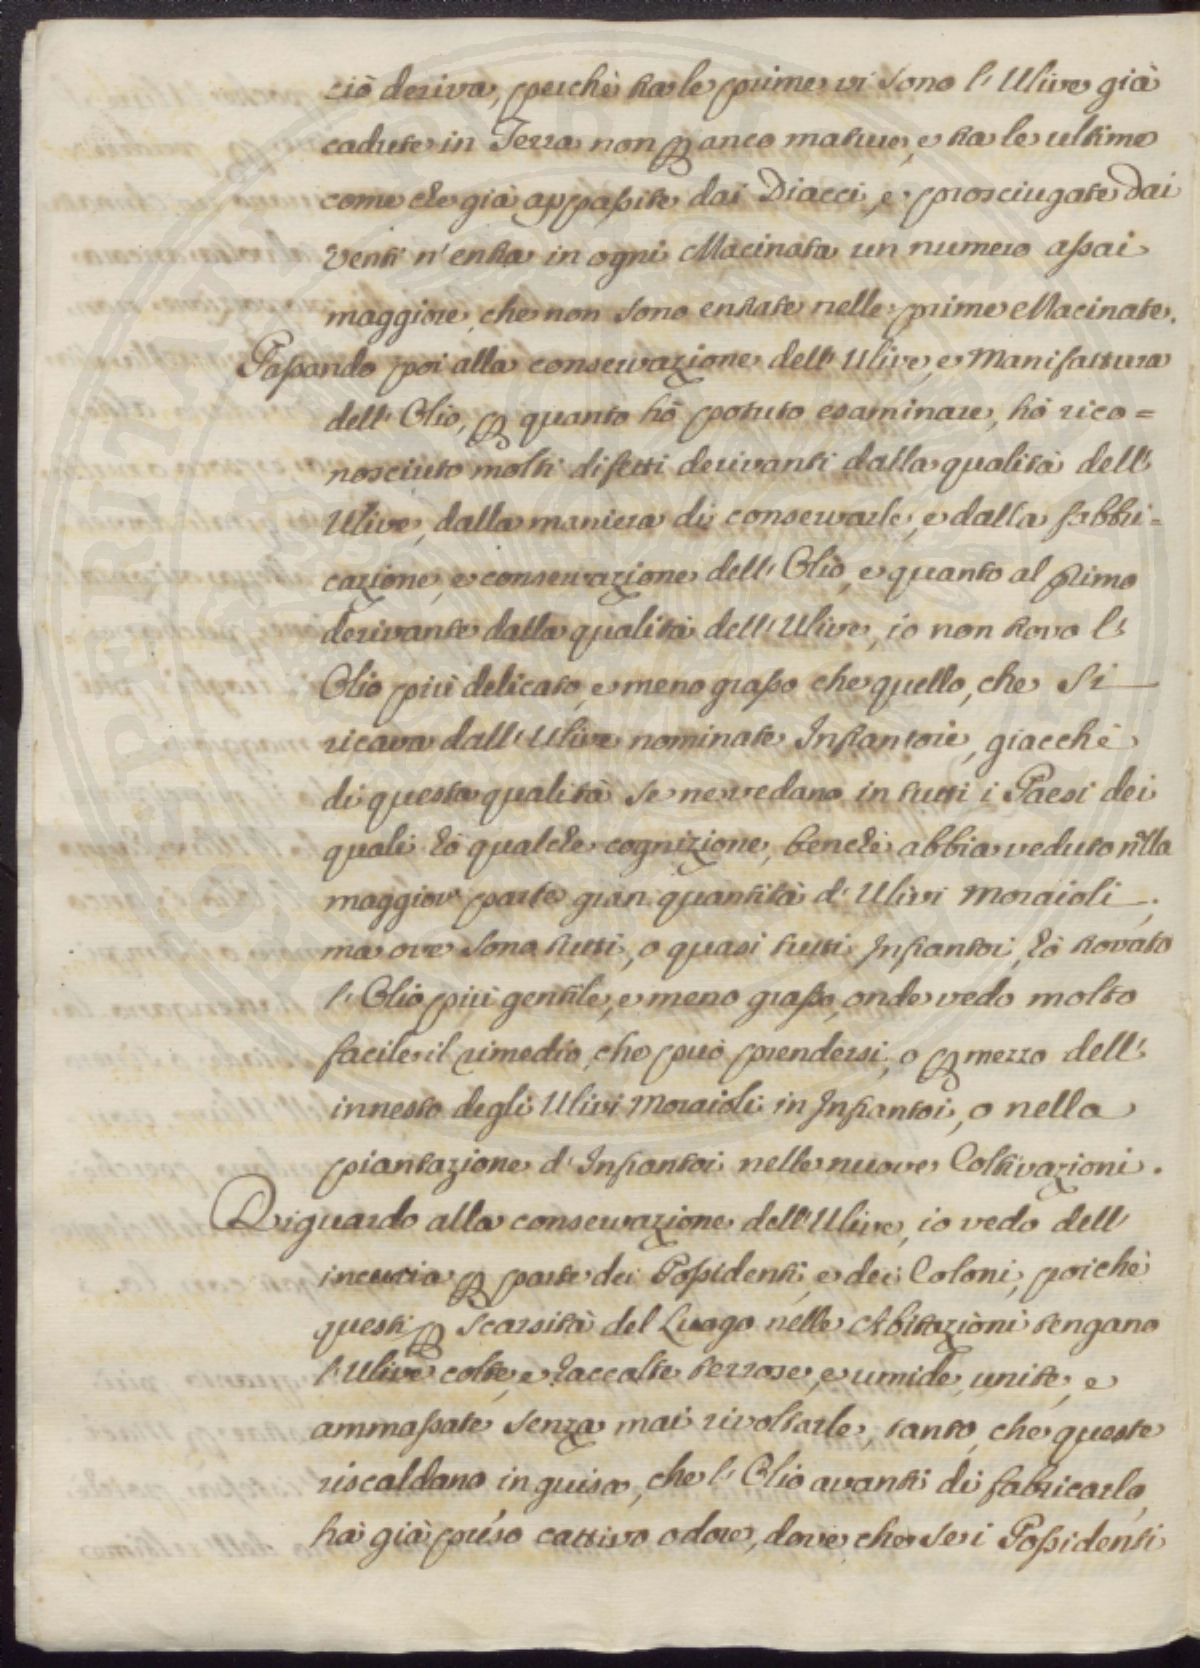 ciò deriva, perchè tra le prime vi sono l'Ulive già
cadute in Terra non ꝑ anco mature, e tra le ultime
come che già appassite dai Diacci, e prosciugate dai
Venti n'entra in ogni Macinata un numero assai
maggiore, che non sono entrate nelle prime Macinate.
Passando poi alla conservazione dell'Ulive, e Manifattura
dell'Olio, ꝑ quanto hò potuto esaminare, hò rico=
nosciuto molti difetti derivanti dalla qualità dell'
Ulive, dalla maniera di conservarle, e dalla fabbri=
cazione, e conservazione dell'Olio, e quanto al primo
derivante dalla qualità dell'Ulive, io non trovo l'
Olio più delicato, e meno grasso che quello, che si
ricava dall'Ulive nominate Infrantoie, giacchè
di questa qualità se ne vedano in tutti i Paesi dei
quali hò qualche cognizione, benchè abbia veduto nella
maggior parte gran quantità d'Ulivi Moraioli;
ma ove sono tutti, o quasi tutti Infrantoi, hò trovato
l'Olio più gentile, e meno grasso, onde vedo molto
facile il rimedio, che può prendersi, o ꝑ mezzo dell'
innesto degli Ulivi Moraioli in Infrantoi, o nella
piantazione d'Infrantoi nelle nuove Coltivazioni.
Riguardo alla conservazione dell'Ulive, io vedo dell'
incuria ꝑ parte dei Possidenti, e dei Coloni, poichè
questi ꝑ scarsità del Luogo nelle Abitazioni tengano
l'Ulive colte, e raccolte terrose, e umide, unite, e
ammassate senza mai rivoltarle, tanto, che queste
riscaldano in guisa, che l'Olio avanti di fabricarlo,
hà già preso cattivo odore, dove che se i Possidenti